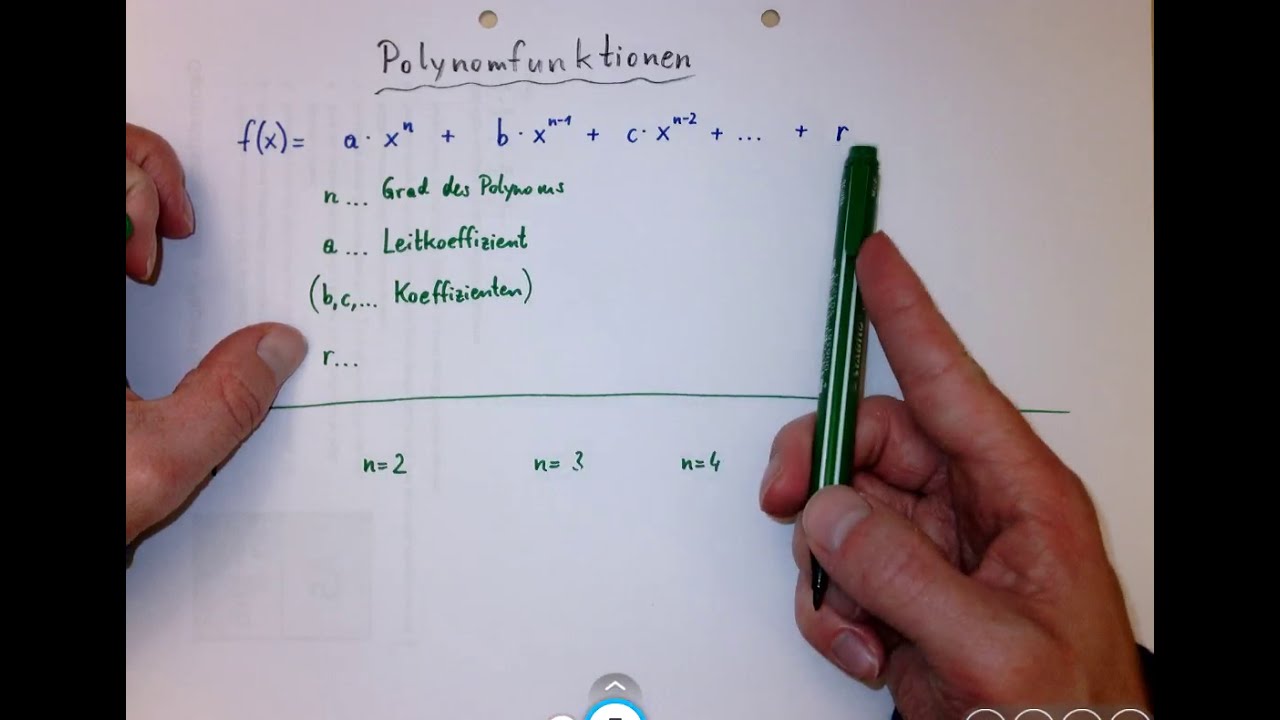 Polynomfunktionen
f(x) = a · xⁿ + b · xⁿ⁻¹ + c · xⁿ⁻² + ... + r
n ... Grad des Polynoms
a ... Leitkoeffizient
(b, c, ... Koeffizienten)
r ...
n = 2 n = 3 n = 4